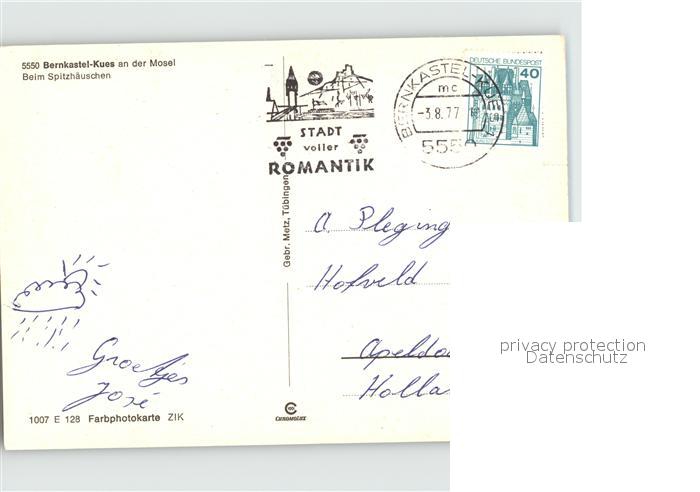 5550 Bernkastel-Kues an der Mosel
Beim Spitzhäuschen
STADT
voller
ROMANTIK
BERNKASTEL-KUES
mc
-3.8.77
555
DEUTSCHE BUNDESPOST
40
Gebr. Metz, Tübingen
A. Pleging
Hofveld
Apeldo
Holla
Groetjes
José
privacy protection
Datenschutz
1007 E 128 Farbphotokarte ZIK
CHROMOLUX